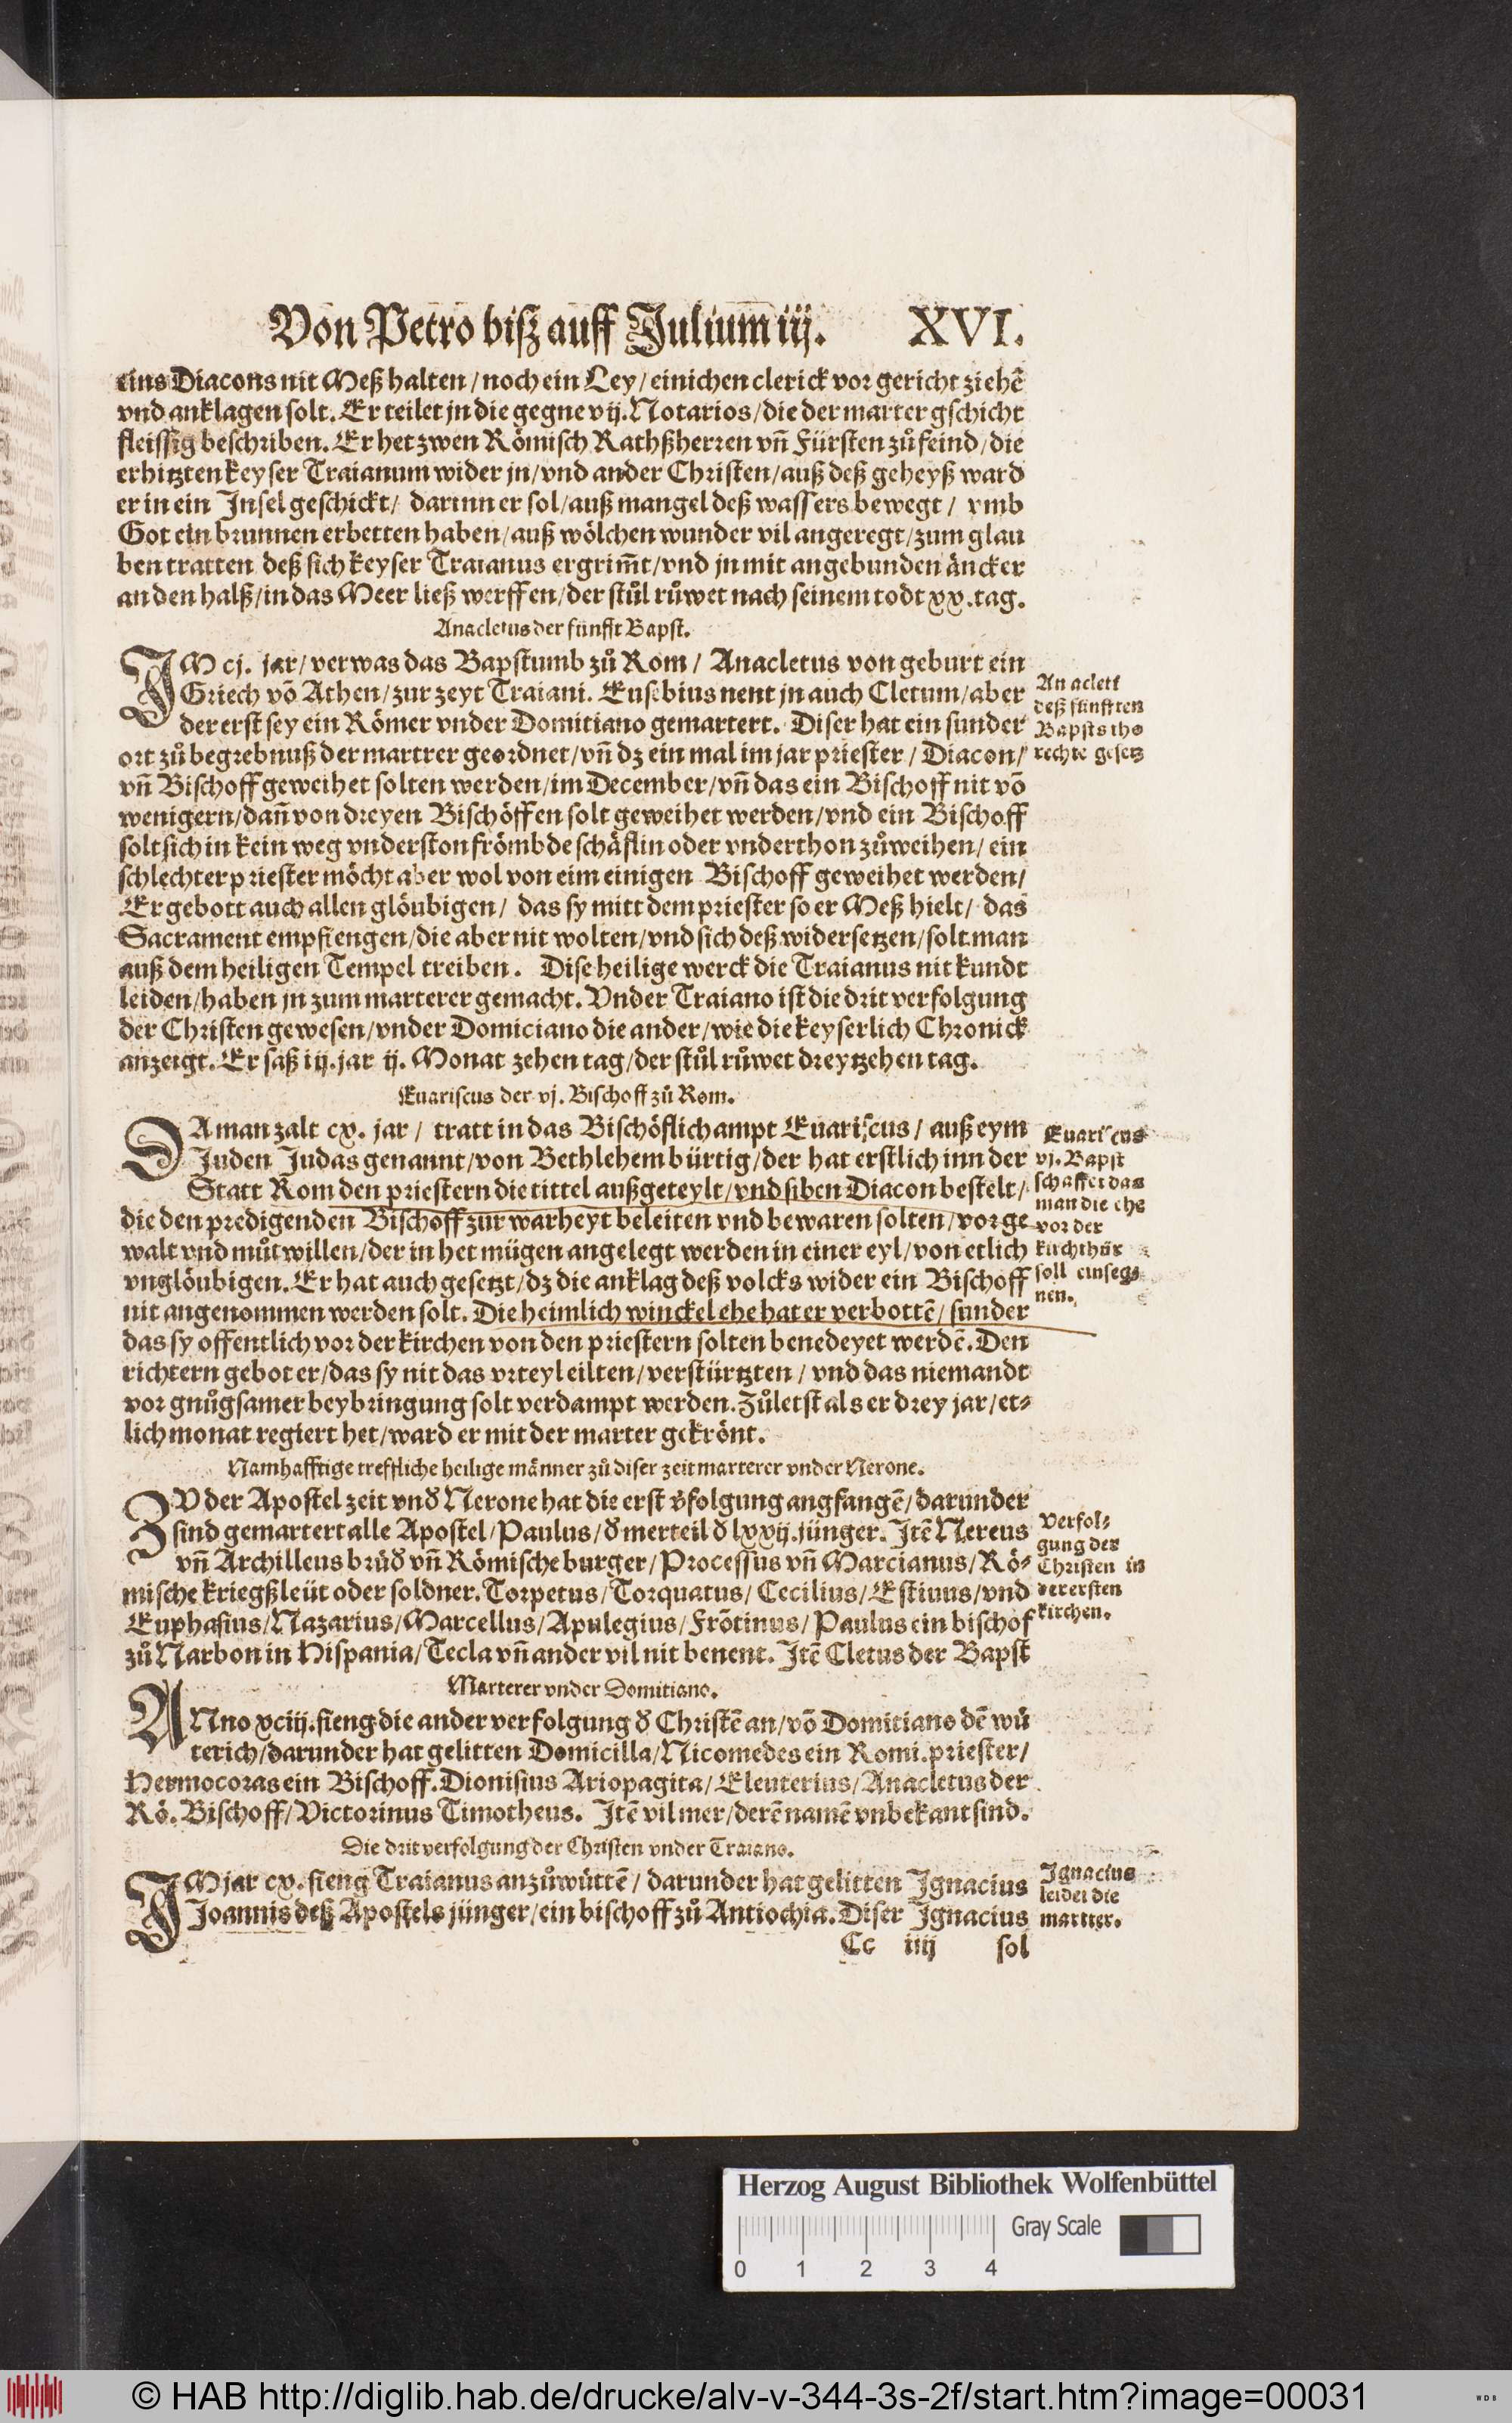 Von Petro biß auff Julium iij. XVI.
eins Diacons nit Meß halten / noch ein Ley / einichen clerick vor gericht ziehē
vnd anklagen solt. Er teilet jn die gegne vij. Notarios / die der marter gschicht
fleissig beschriben. Er het zwen Römisch Rathßherren vñ Fürsten zů feind / die
erhitzten keyser Traianum wider jn / vnd ander Christen / auß deß geheyß ward
er in ein Insel geschickt / darinn er sol / auß mangel deß wassers bewegt / vmb
Got ein brunnen erbetten haben / auß wölchen wunder vil angeregt / zum glau
ben tratten deß sich keyser Traianus ergrim̃t / vnd jn mit angebunden äncker
an den halß / in das Meer ließ werffen / der stůl růwet nach seinem todt xx. tag.
Anacletus der fünfft Bapst.
IM cj. jar / verwas das Bapstumb zů Rom / Anacletus von geburt ein
Griech võ Athen / zur zeyt Traiani. Eusebius nent jn auch Cletum / aber
der erst sey ein Römer vnder Domitiano gemartert. Diser hat ein sunder
ort zů begrebnuß der martrer geordnet / vñ dz ein mal im jar priester / Diacon /
vñ Bischoff geweihet solten werden / im December / vñ das ein Bischoff nit võ
wenigern / dañ von dreyen Bischöffen solt geweihet werden / vnd ein Bischoff
solt sich in kein weg vnderston frömbde schäflin oder vnderthon zůweihen / ein
schlechter priester möcht aber wol von eim einigen Bischoff geweihet werden /
Er gebott auch allen glöubigen / das sy mitt dem priester so er Meß hielt / das
Sacrament empfiengen / die aber nit wolten / vnd sich deß widersetzen / solt man
auß dem heiligen Tempel treiben. Dise heilige werck die Traianus nit kundt
leiden / haben jn zum marterer gemacht. Vnder Traiano ist die drit verfolgung
der Christen gewesen / vnder Domiciano die ander / wie die keyserlich Chronick
anzeigt. Er saß iij. jar ij. Monat zehen tag / der stůl růwet dreytzehen tag.
Anacleti
deß fünfften
Bapsts tho
rechte gesetz
Euariscus der vj. Bischoff zů Rom.
DA man zalt cx. jar / tratt in das Bischöflich ampt Euariscus / auß eym
Juden Judas genannt / von Bethlehem bürtig / der hat erstlich inn der
Statt Rom den priestern die tittel außgeteylt / vnd siben Diacon bestelt /
die den predigenden Bischoff zur warheyt beleiten vnd bewaren solten / vor ge
walt vnd můtwillen / der in het mügen angelegt werden in einer eyl / von etlich
vnglöubigen. Er hat auch gesetzt / dz die anklag deß volcks wider ein Bischoff
nit angenommen werden solt. Die heimlich winckel ehe hat er verbottē / sunder
das sy offentlich vor der kirchen von den priestern solten benedeyet werdē. Den
richtern gebot er / das sy nit das vrteyl eilten / verstürtzten / vnd das niemandt
vor gnůgsamer beybringung solt verdampt werden. Zůletst als er drey jar / et⸗
lich monat regiert het / ward er mit der marter gekrönt.
Euariscus
vj. Bapst
schaffet das
man die ehe
vor der
kirchthür
soll einseg⸗
nen.
Namhafftige treffliche heilige männer zů diser zeit marterer vnder Nerone.
ZV der Apostel zeit vnđ Nerone hat die erst v̄folgung angfangē / darunder
sind gemartert alle Apostel / Paulus / đ merteil đ lxxij. jünger. Itē Nereus
vñ Archilleus brůđ vñ Römische burger / Processus vñ Marcianus / Rö⸗
mische kriegßleüt oder soldner. Torpetus / Torquatus / Cecilius / Estiuus / vnd
Euphasius / Nazarius / Marcellus / Apulegius / Frõtinus / Paulus ein bischof
zů Narbon in Hispania / Tecla vñ ander vil nit benent. Itē Cletus der Bapst
Verfol⸗
gung der
Christen in
der ersten
kirchen.
Marterer vnder Domitiano.
ANno xciij. fieng die ander verfolgung đ Christē an / võ Domitiano dē wů
terich / darunder hat gelitten Domicilla / Nicomedes ein Romi. priester /
Hermocoras ein Bischoff. Dionisius Ariopagita / Eleuterius / Anacletus der
Rö. Bischoff / Victorinus Timotheus. Itē vil mer / derē namē vnbekant sind.
Die drit verfolgung der Christen vnder Traiano.
IM jar cx. fieng Traianus an zůwüttē / darunder hat gelitten Ignacius
Joannis deß Apostels jünger / ein bischoff zů Antiochia. Diser Ignacius
Ignacius
leidet die
martter.
Cc iiij sol
Herzog August Bibliothek Wolfenbüttel
Gray Scale
0 1 2 3 4
© HAB http://diglib.hab.de/drucke/alv-v-344-3s-2f/start.htm?image=00031
WDB